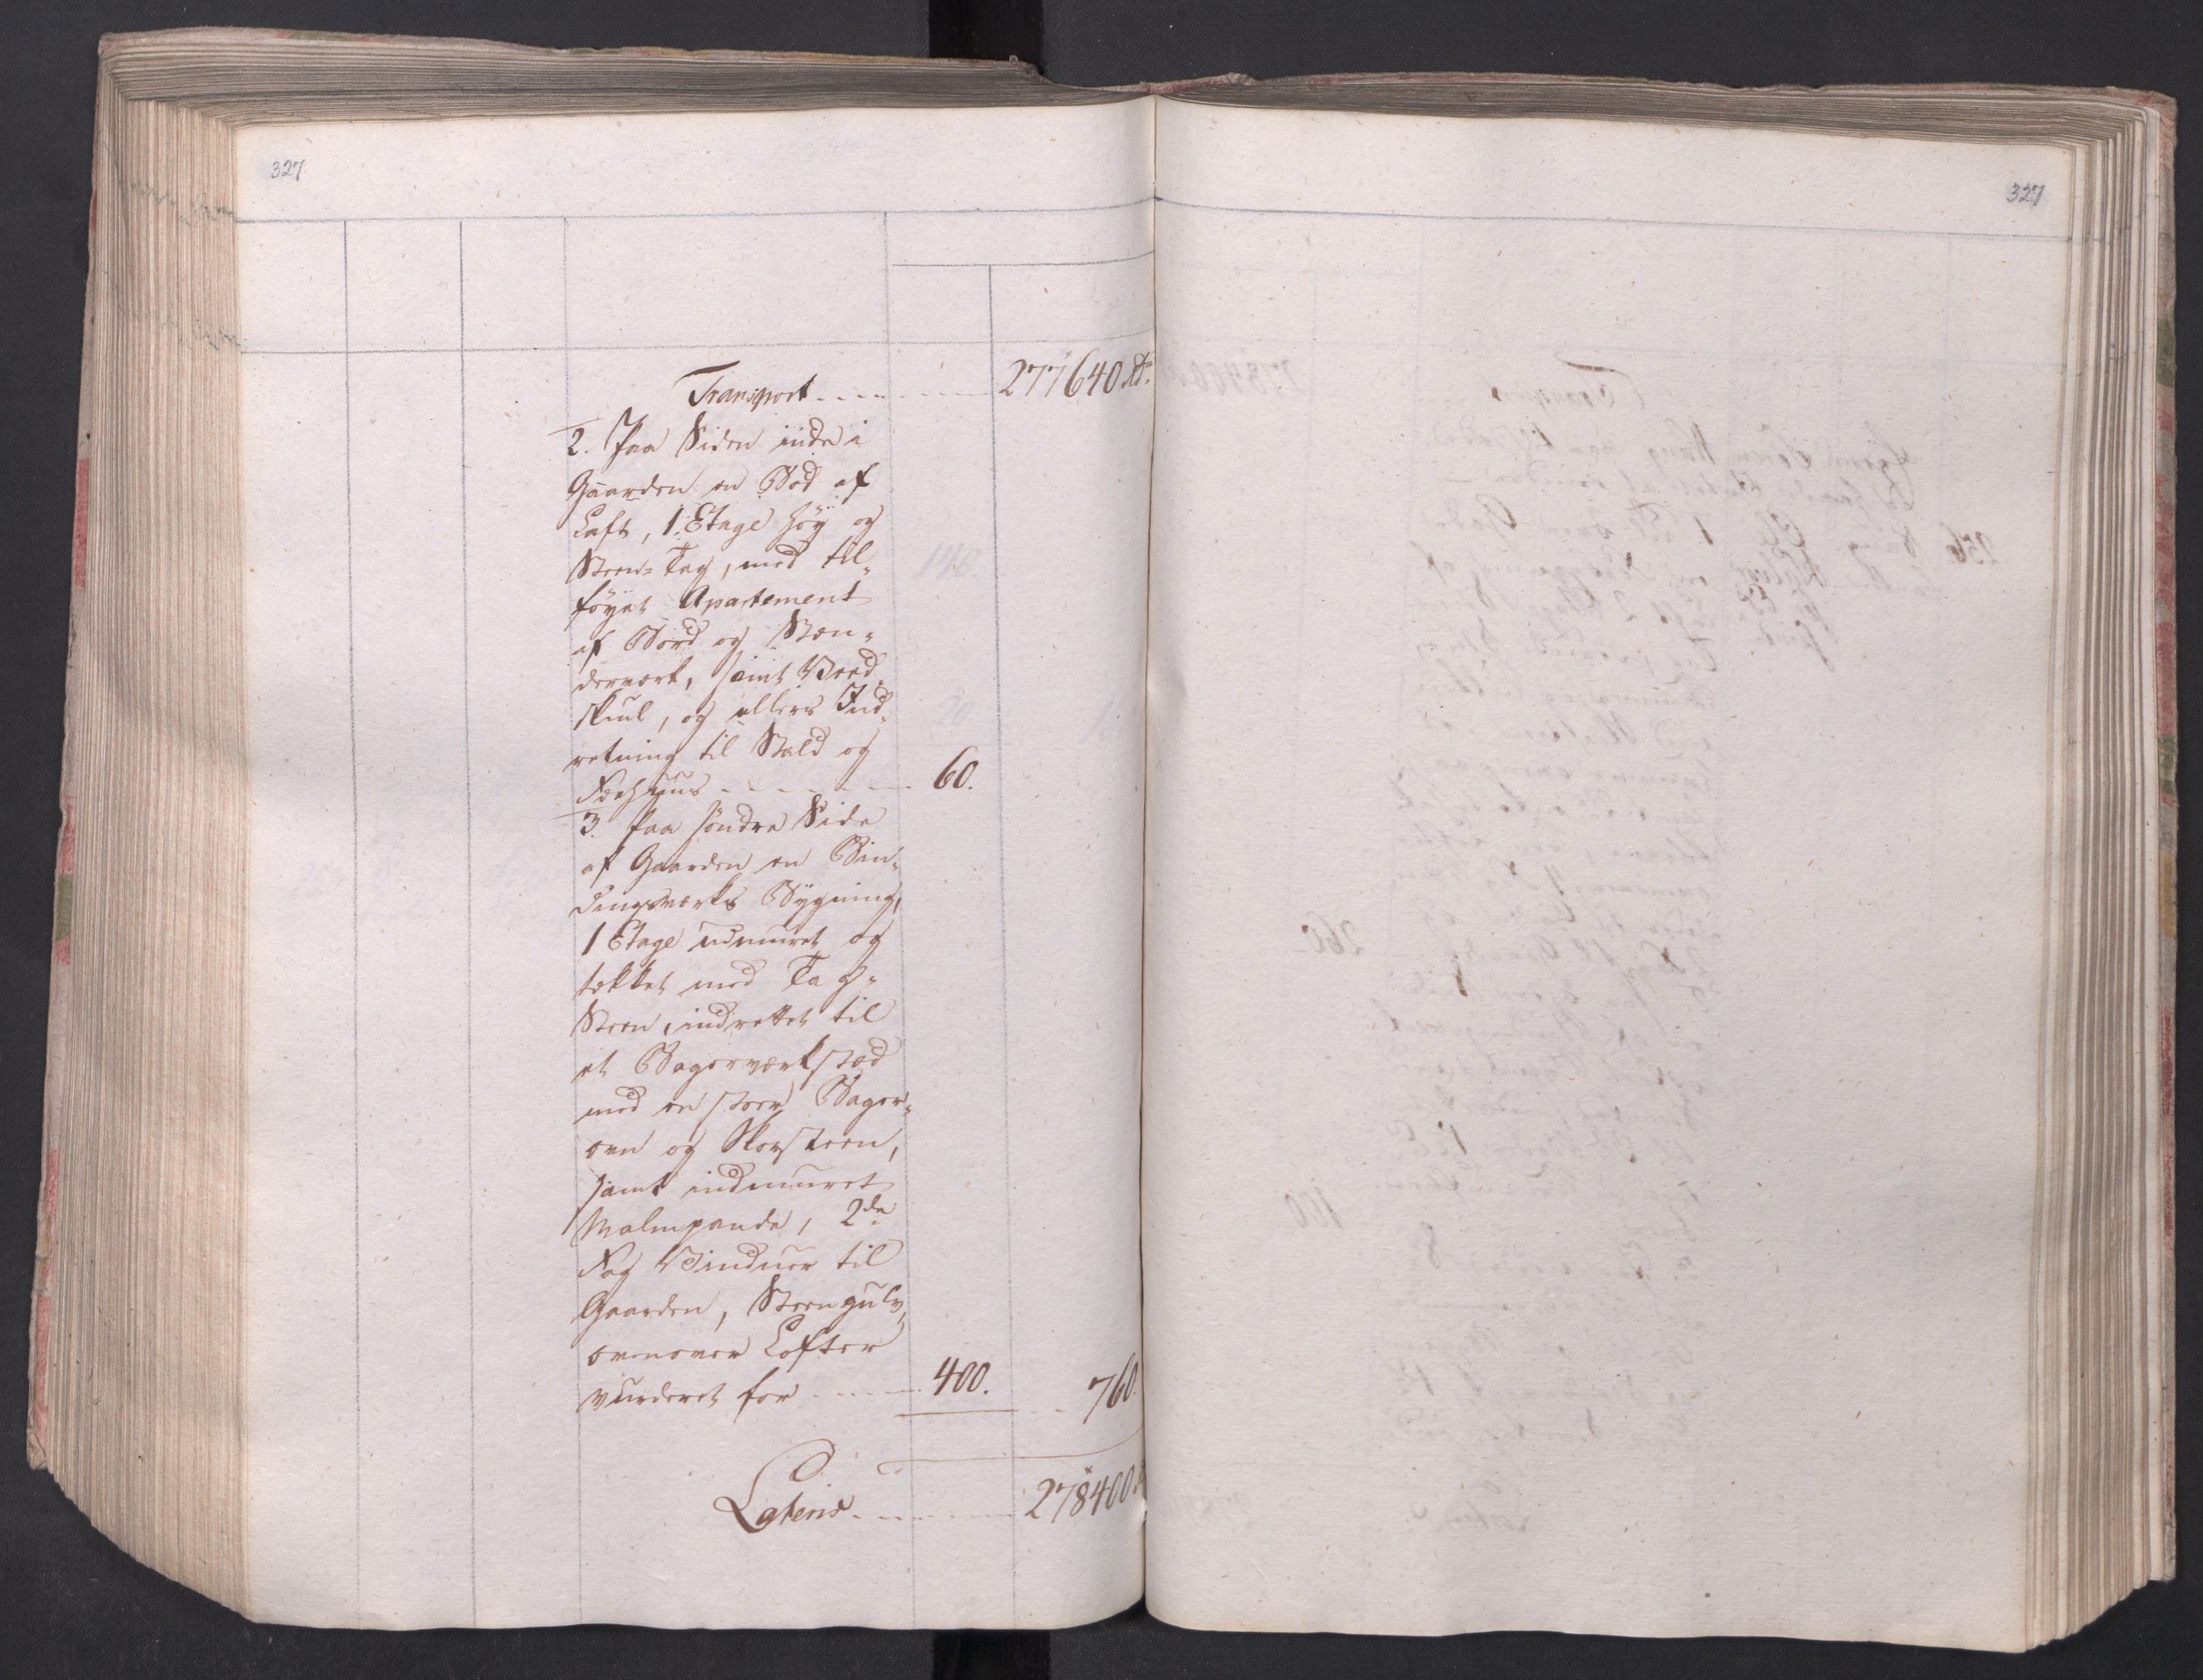 327
Transport - - - - - - - - - 277640 Rdr.
2. Paa Siden inde i
Gaarden en Bod af
Laft, 1 Etage høÿ og
Steen-Tag, med til-
føÿet Apartement
af Bord og Stæn-
derværk, samt Veed-
skiul, og ellers Ind-
retning til Stald og
Fæehuus - - - - - - - 60.
3. paa søndre Side
af Gaarden en Bin-
dingsværks Bygning,
1 Etage udmuret og
tækket med Tag-
Steen, indrettet til
et Bagerværksted
med en stoer Bager-
ovn og Skorsteen,
samt indmuret
Malmpande, 2de
Fag Vinduer til
Gaarden, Steengulv,
ovenover Lofter
vurderet for - - - - - 400. - - 760.
Lateris - - - - - - - - 278400
327